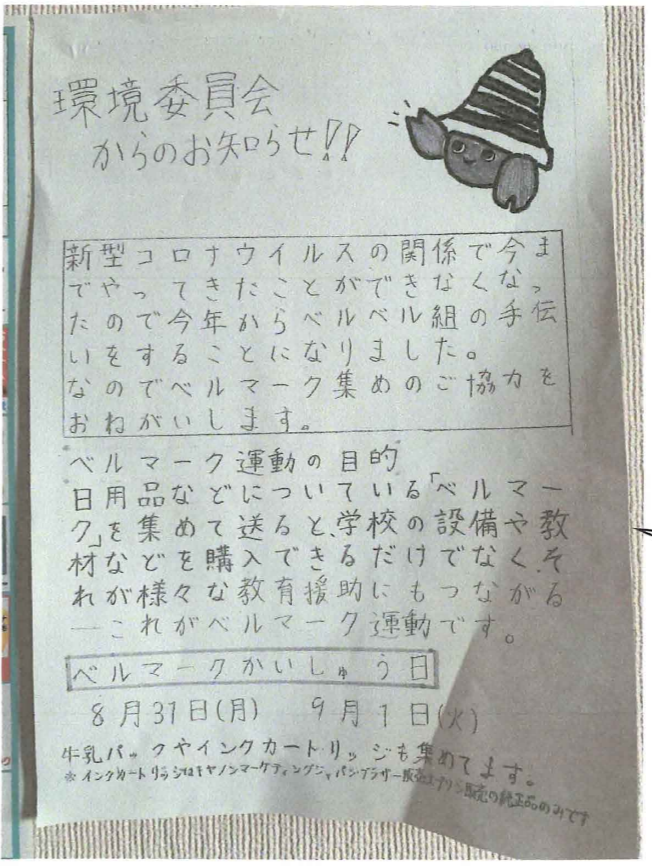 環境委員会
からのお知らせ!!
新型コロナウイルスの関係で今ま
でやってきたことができなくなっ
たので今年からベルベル組の手伝
いをすることになりました。
なのでベルマーク集めのご協力を
おねがいします。
ベルマーク運動の目的
日用品などについている「ベルマー
ク」を集めて送ると、学校の設備や教
材などを購入できるだけでなく、そ
れが様々な教育援助にもつながる
―これがベルマーク運動です。
ベルマークかいしゅう日
8月31日(月) 9月1日(火)
牛乳パックやインクカートリッジも集めてます。
※インクカートリッジはキヤノンマーケティングジャパン・ブラザー販売・エプソン販売の純正品のみです